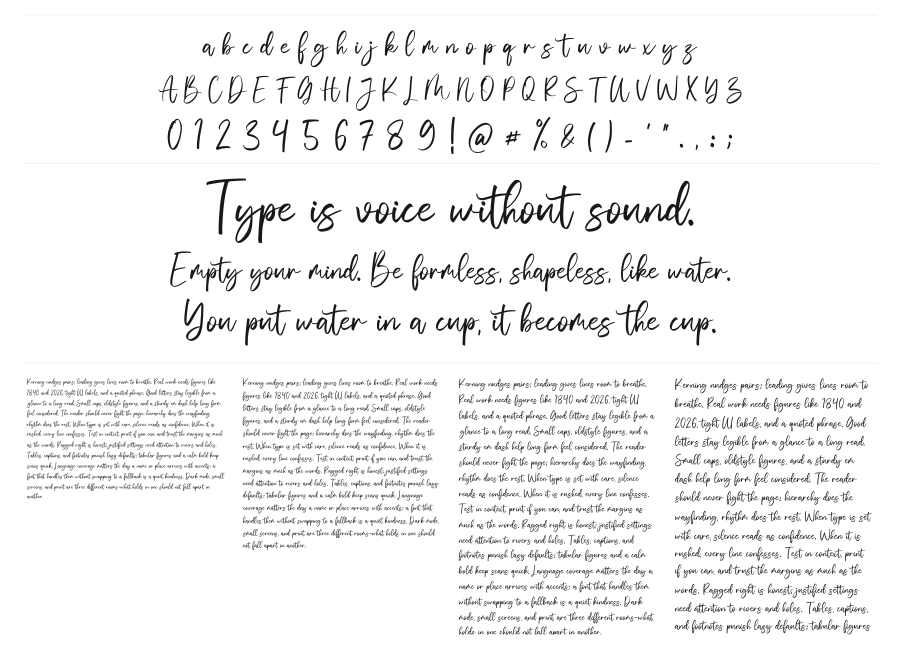 a b c d e f g h i j k l m n o p q r s t u v w x y z
A B C D E F G H I J K L M N O P Q R S T U V W X Y Z
0 1 2 3 4 5 6 7 8 9 ! @ # % & ( ) - ' " . , : ;
Type is voice without sound.
Empty your mind. Be formless, shapeless, like water.
You put water in a cup, it becomes the cup.
Kerning nudges pairs; leading gives lines room to breathe. Real work needs figures like
1840 and 2026, tight W labels, and a quoted phrase. Good letters stay legible from a
glance to a long read. Small caps, oldstyle figures, and a sturdy em dash help long form
feel considered. The reader should never fight the page; hierarchy does the wayfinding,
rhythm does the rest. When type is set with care, silence reads as confidence. When it is
rushed, every line confesses. Test in context, print if you can, and trust the margins as much
as the words. Ragged right is honest; justified settings need attention to rivers and holes.
Tables, captions, and footnotes punish lazy defaults; tabular figures and a calm bold keep
scans quick. Language coverage matters the day a name or place arrives with accents; a
font that handles them without swapping to a fallback is a quiet kindness. Dark mode, small
screens, and print are three different rooms—what holds in one should not fall apart in
another.
Kerning nudges pairs; leading gives lines room to breathe. Real work needs
figures like 1840 and 2026, tight W labels, and a quoted phrase. Good
letters stay legible from a glance to a long read. Small caps, oldstyle
figures, and a sturdy em dash help long form feel considered. The reader
should never fight the page; hierarchy does the wayfinding, rhythm does the
rest. When type is set with care, silence reads as confidence. When it is
rushed, every line confesses. Test in context, print if you can, and trust the
margins as much as the words. Ragged right is honest; justified settings
need attention to rivers and holes. Tables, captions, and footnotes punish lazy
defaults; tabular figures and a calm bold keep scans quick. Language
coverage matters the day a name or place arrives with accents; a font that
handles them without swapping to a fallback is a quiet kindness. Dark mode,
small screens, and print are three different rooms—what holds in one should
not fall apart in another.
Kerning nudges pairs; leading gives lines room to breathe.
Real work needs figures like 1840 and 2026, tight W
labels, and a quoted phrase. Good letters stay legible from a
glance to a long read. Small caps, oldstyle figures, and a
sturdy em dash help long form feel considered. The reader
should never fight the page; hierarchy does the wayfinding,
rhythm does the rest. When type is set with care, silence
reads as confidence. When it is rushed, every line confesses.
Test in context, print if you can, and trust the margins as
much as the words. Ragged right is honest; justified settings
need attention to rivers and holes. Tables, captions, and
footnotes punish lazy defaults; tabular figures and a calm
bold keep scans quick. Language coverage matters the day a
name or place arrives with accents; a font that handles them
without swapping to a fallback is a quiet kindness. Dark
mode, small screens, and print are three different rooms—what
holds in one should not fall apart in another.
Kerning nudges pairs; leading gives lines room to
breathe. Real work needs figures like 1840 and
2026, tight W labels, and a quoted phrase. Good
letters stay legible from a glance to a long read.
Small caps, oldstyle figures, and a sturdy em
dash help long form feel considered. The reader
should never fight the page; hierarchy does the
wayfinding, rhythm does the rest. When type is set
with care, silence reads as confidence. When it is
rushed, every line confesses. Test in context, print
if you can, and trust the margins as much as the
words. Ragged right is honest; justified settings
need attention to rivers and holes. Tables, captions,
and footnotes punish lazy defaults; tabular figures